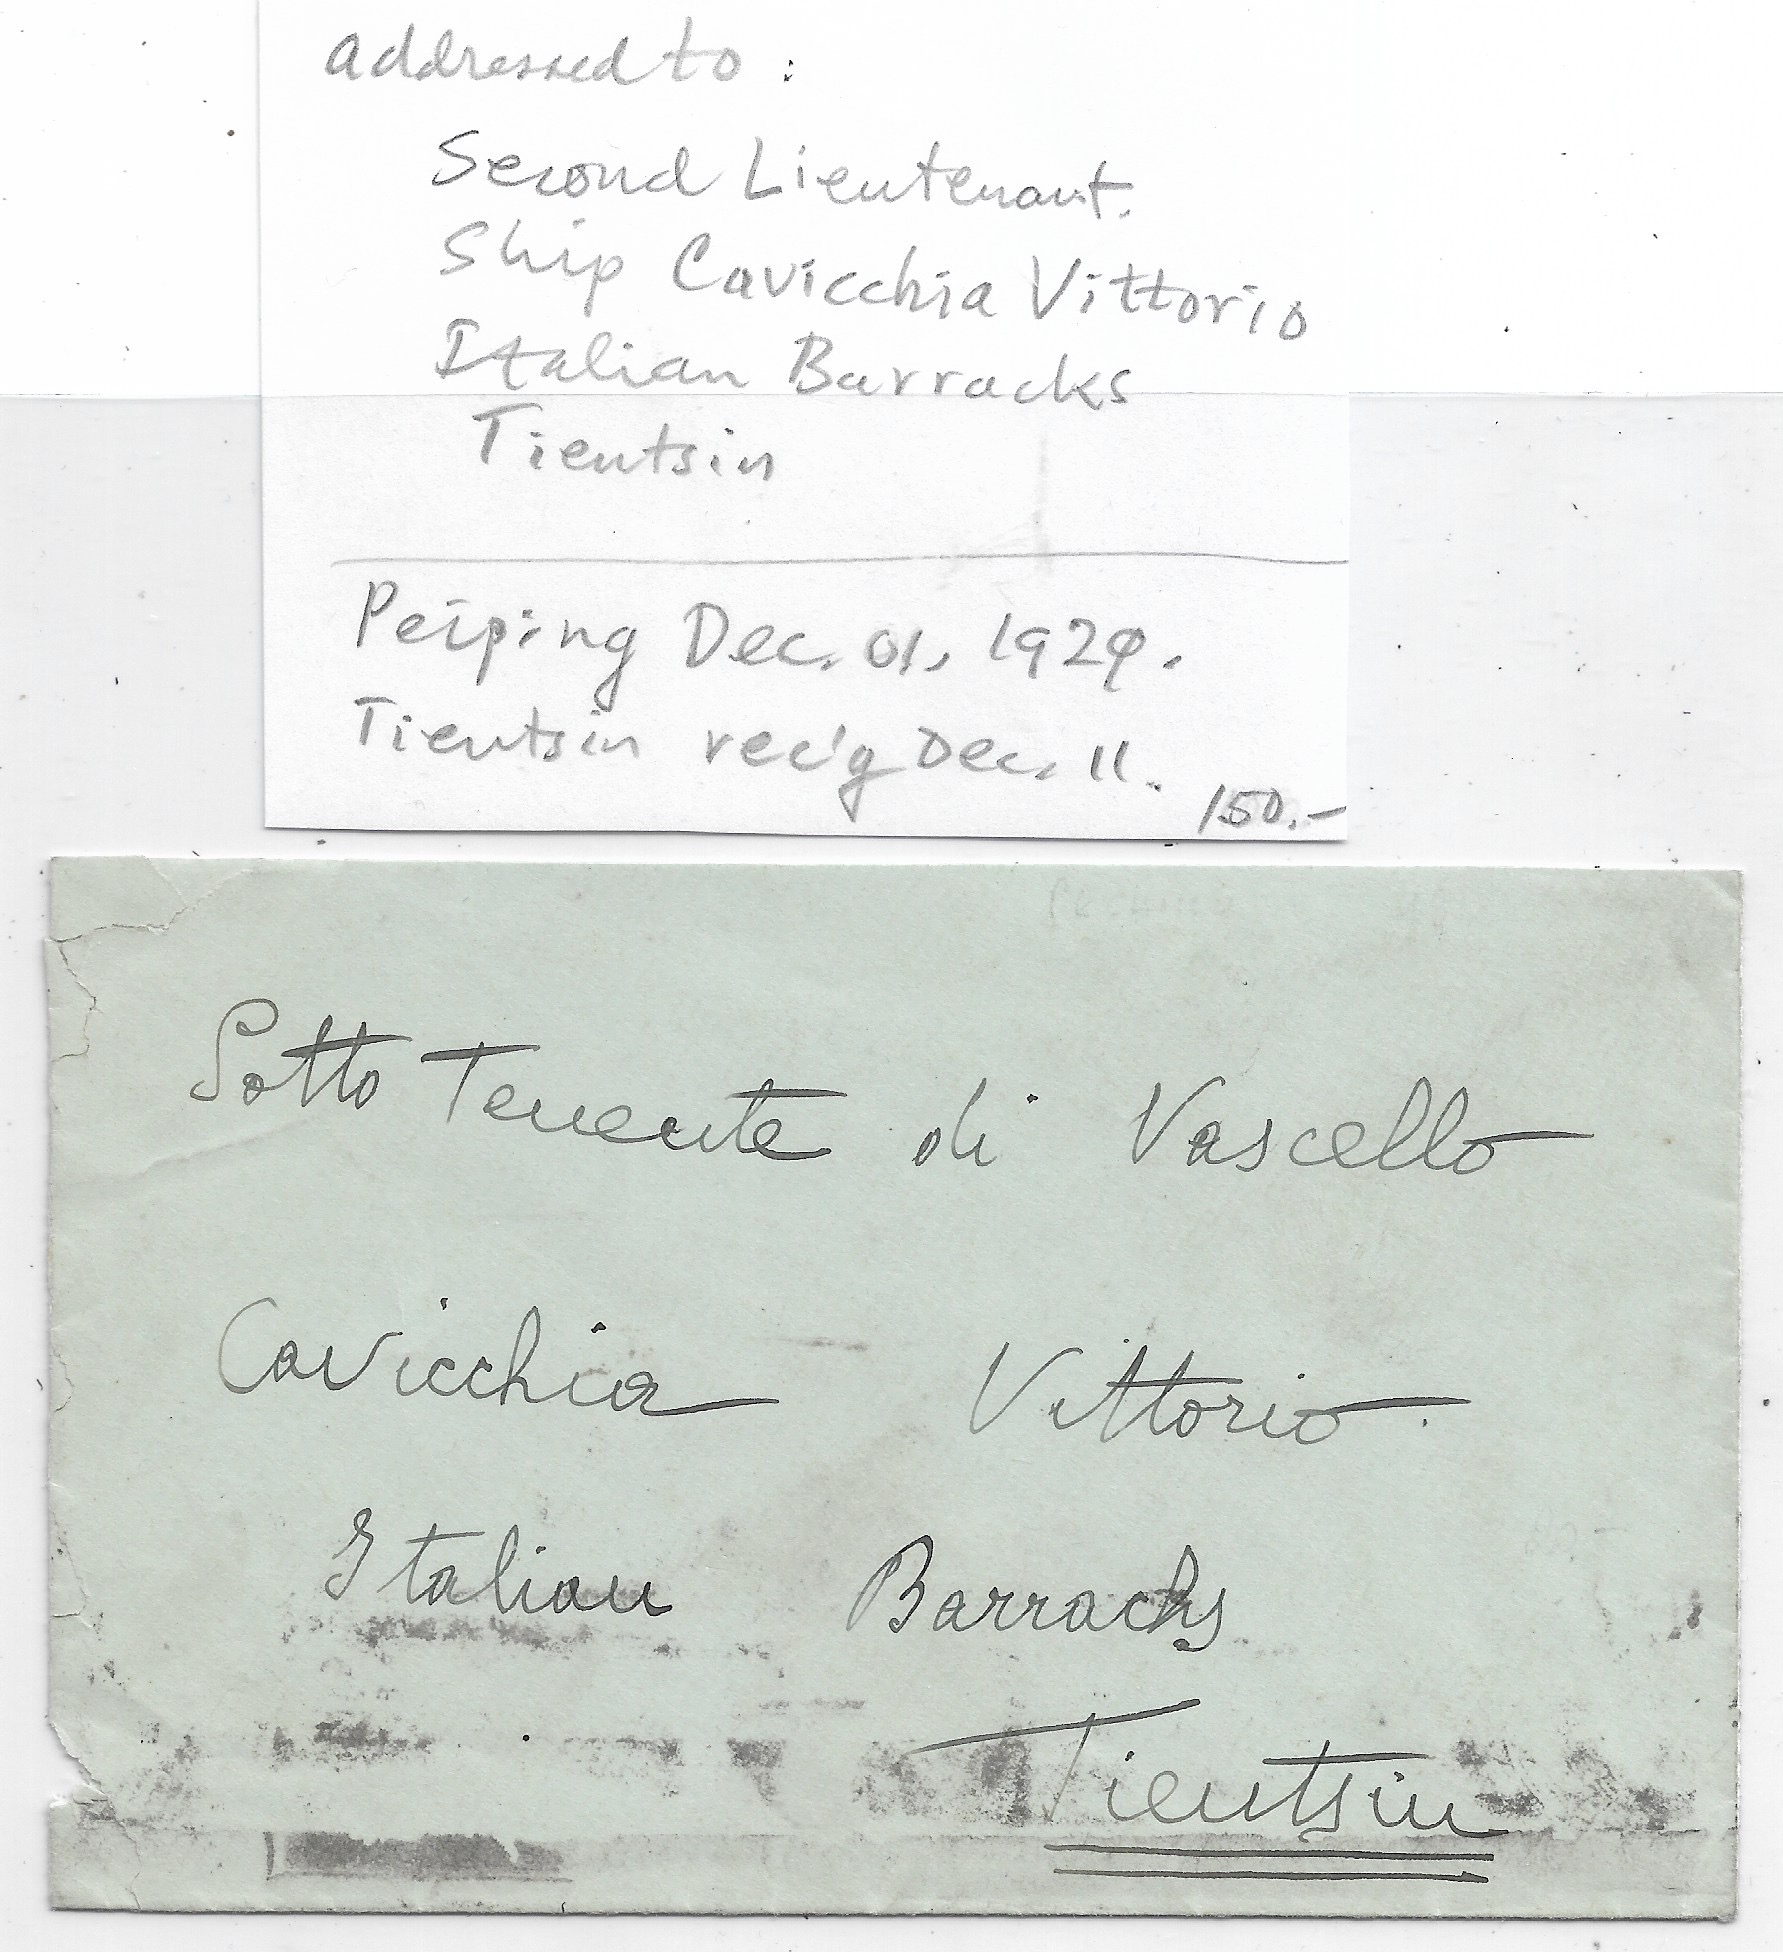 addressed to :
Second Lieutenant.
Ship Cavicchia Vittorio
Italian Barracks
Tientsin
Peiping Dec. 01, 1929.
Tientsin rec'g Dec. 11.
150.-
Sotto Tenente di Vascello
Cavicchia Vittorio.
Italian Barracks
Tientsin